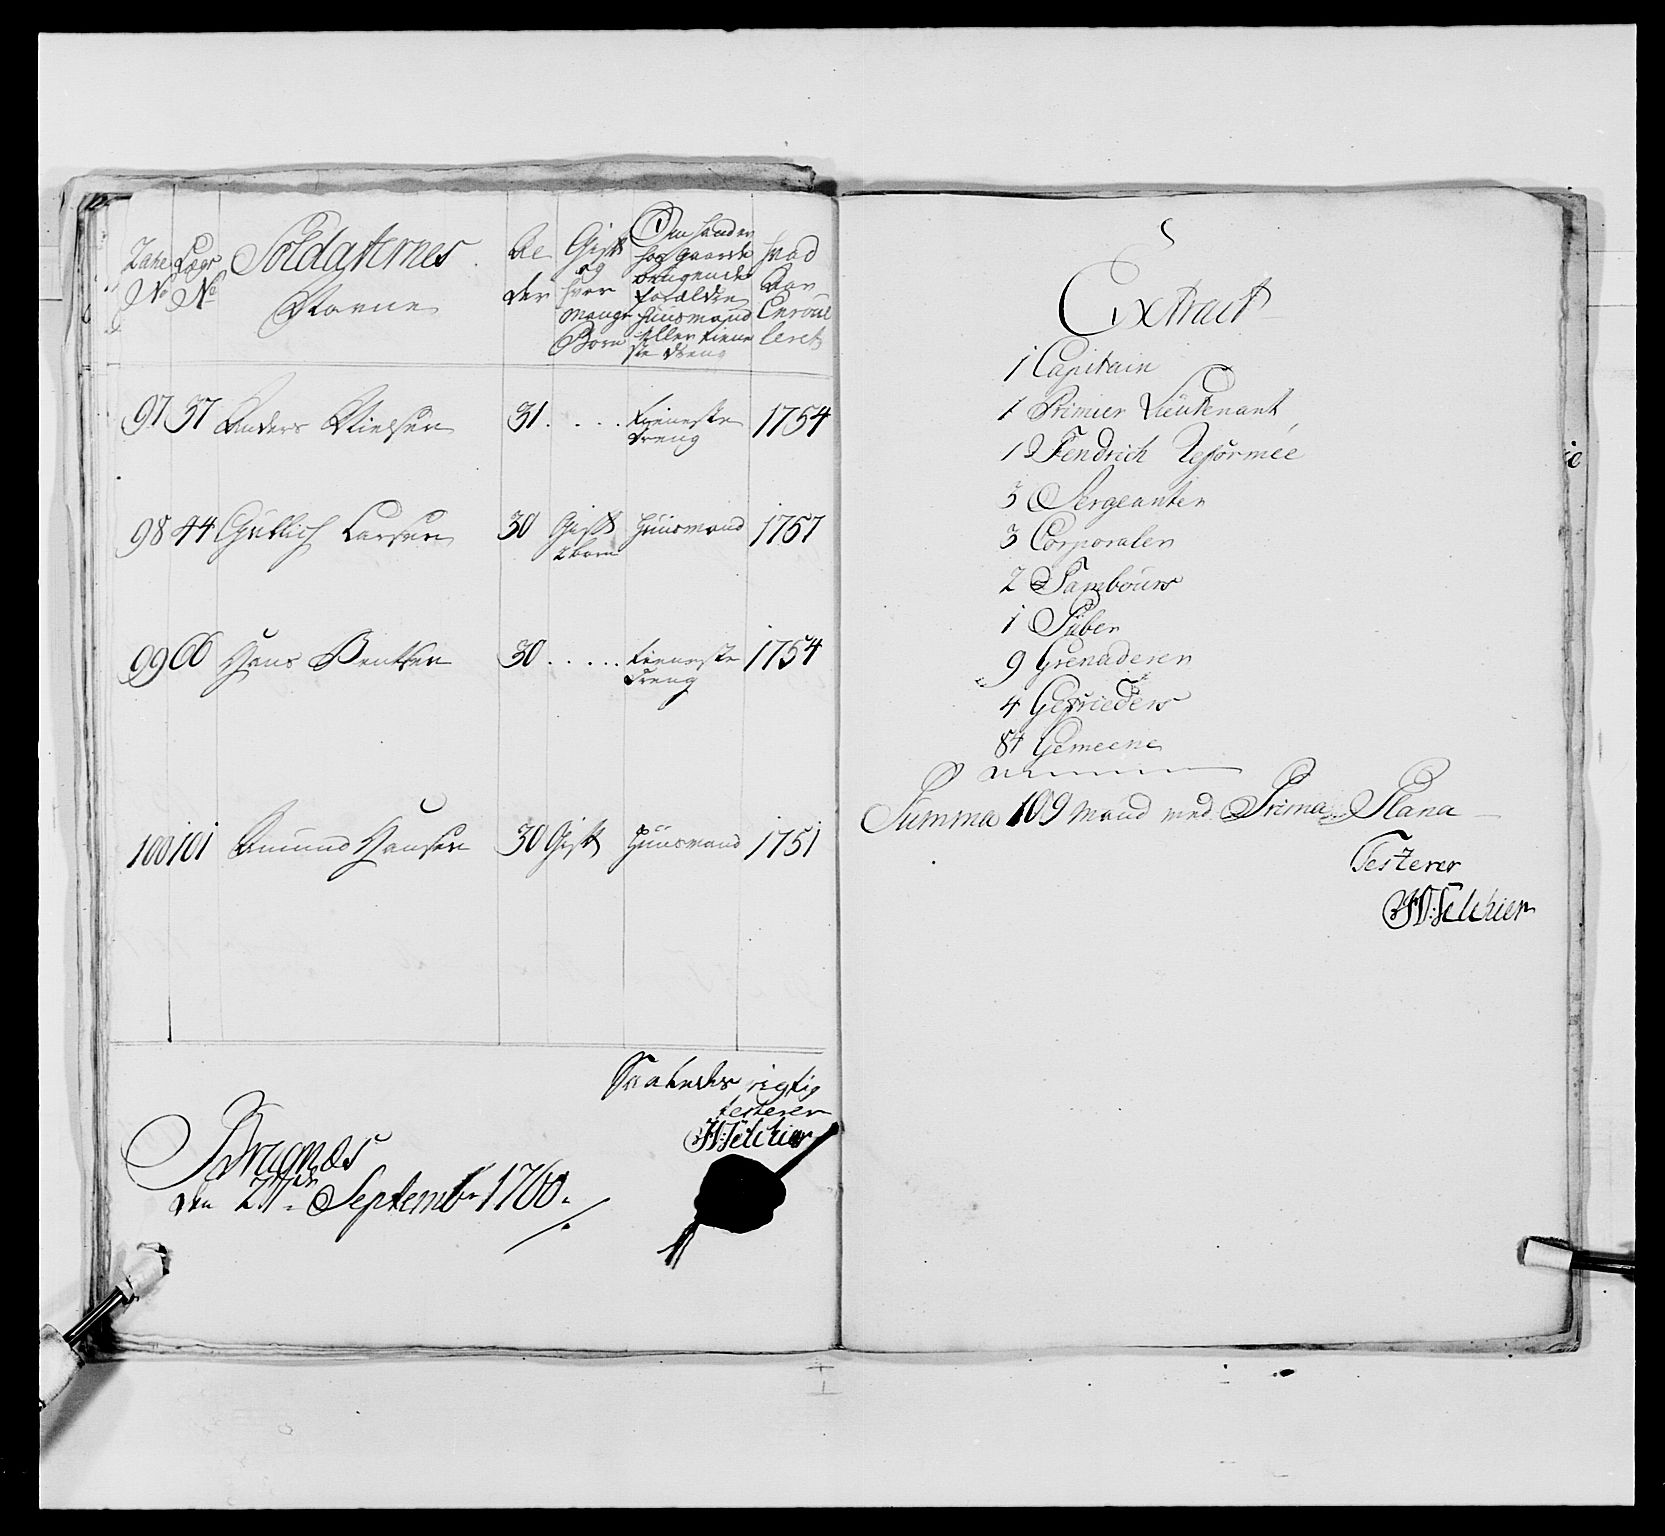 Lægs
No No
Soldaternes
Navne
Al
der
Gift
og
hvor
mange
Børn
Om hand er
hos gaard
brugende
forældre
huusmand
eller tiene
ste dreng
hvad
Aar
Enroul
leret
97 37 Anders Nielsen 31 . . . . tieneste dreng 1754
98 44 Larsen 30 Gift 2 born huusmand 1757
99 66 Hans Bentsen 30 . . . . . tieneste dreng 1754
100 101 Amund Hansen 30 Gift huusmand 1751
Saaledes rigtig
testerer
Bragnæs
den 27de Septembr 1760.
Extract
1 Capitain
1 Primier Lieutenant
1 Fendrich Reformée
3 Sergeanter
3 Corporaler
2 Tambours
1 Piber
9 Grenaderer
4 Gefrieders
84 Gemeene
Summa 109 Mand med Prima Plana
Testerer